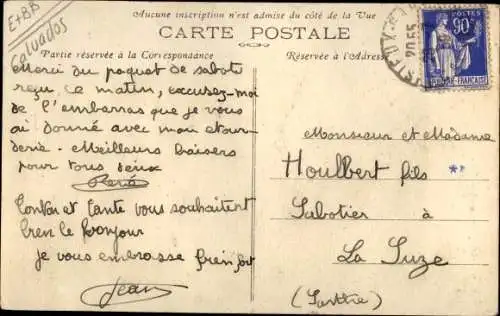 E+BB
Calvados
Aucune inscription n'est admise du côté de la Vue
CARTE POSTALE
Partie réservée à la Correspondance
Réservée à l'Adresse
POSTES
90c
RÉPUBLIQUE-FRANÇAISE
20.55
Merci du paquet de sabots
reçu ce matin, excusez-moi
de l'embarras que je vous
ai donné avec mon étour-
derie - Meilleurs baisers
pour tous deux
René
Tonton et Tante vous souhaitent
bien le bonjour
je vous embrasse bien fort
Jean
Monsieur et Madame
Houlbert fils
Sabotier à
La Suze
(Sarthe)